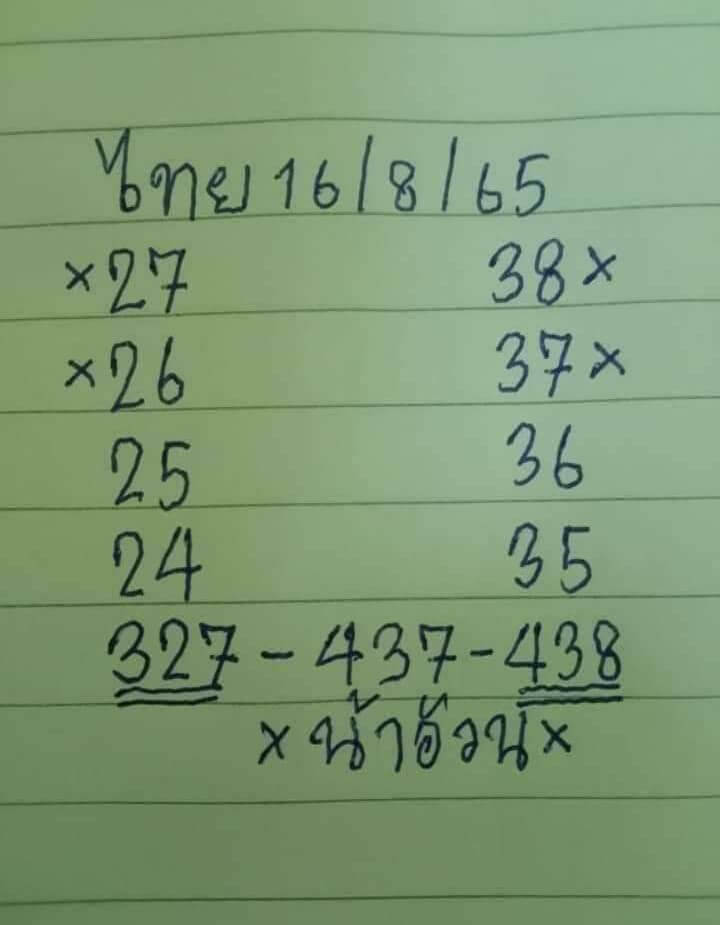 ไทย 16/8/65
×27 38×
×26 37×
25 36
24 35
327 - 437 - 438
×น้าอ้วน×